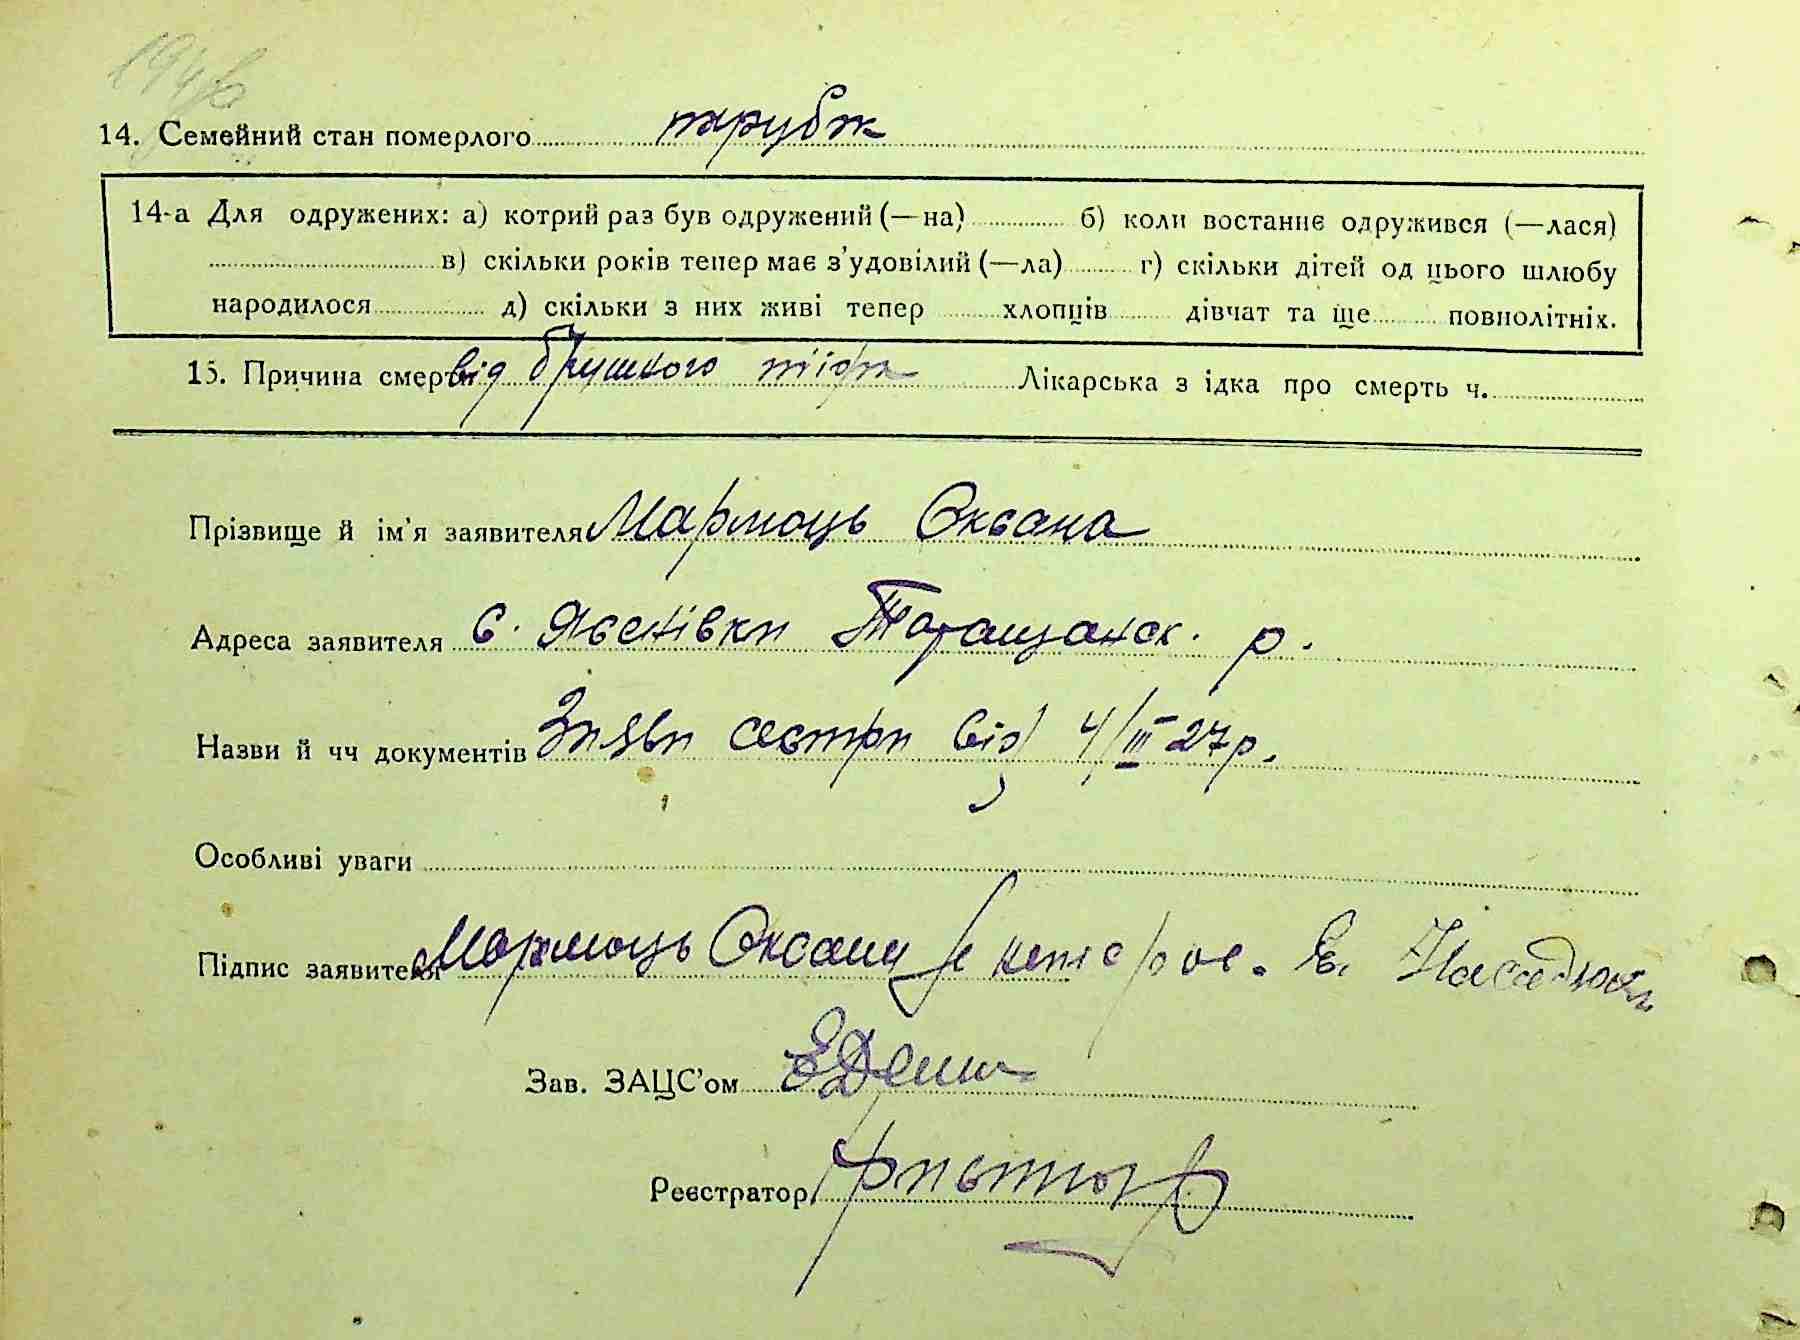 194
14. Семейний стан померлого парубок
14-а Для одружених: а) котрий раз був одружений (—на) б) коли востаннє одружився (—лася)
в) скільки років тепер має з'удовілий (—ла) г) скільки дітей од цього шлюбу
народилося д) скільки з них живі тепер хлопців дівчат та ще повнолітніх.
15. Причина смерти від брушного тіфа Лікарська з ідка про смерть ч.
Прізвище й ім'я заявителя Мармоць Оксана
Адреса заявителя с. Яснівки Таращанск. р.
Назви й чч документів Заяви сестри від 4/III 27 р.
Особливі уваги
Підпис заявителя Мармоць Оксана
Зав. ЗАЦС'ом
Реєстратор